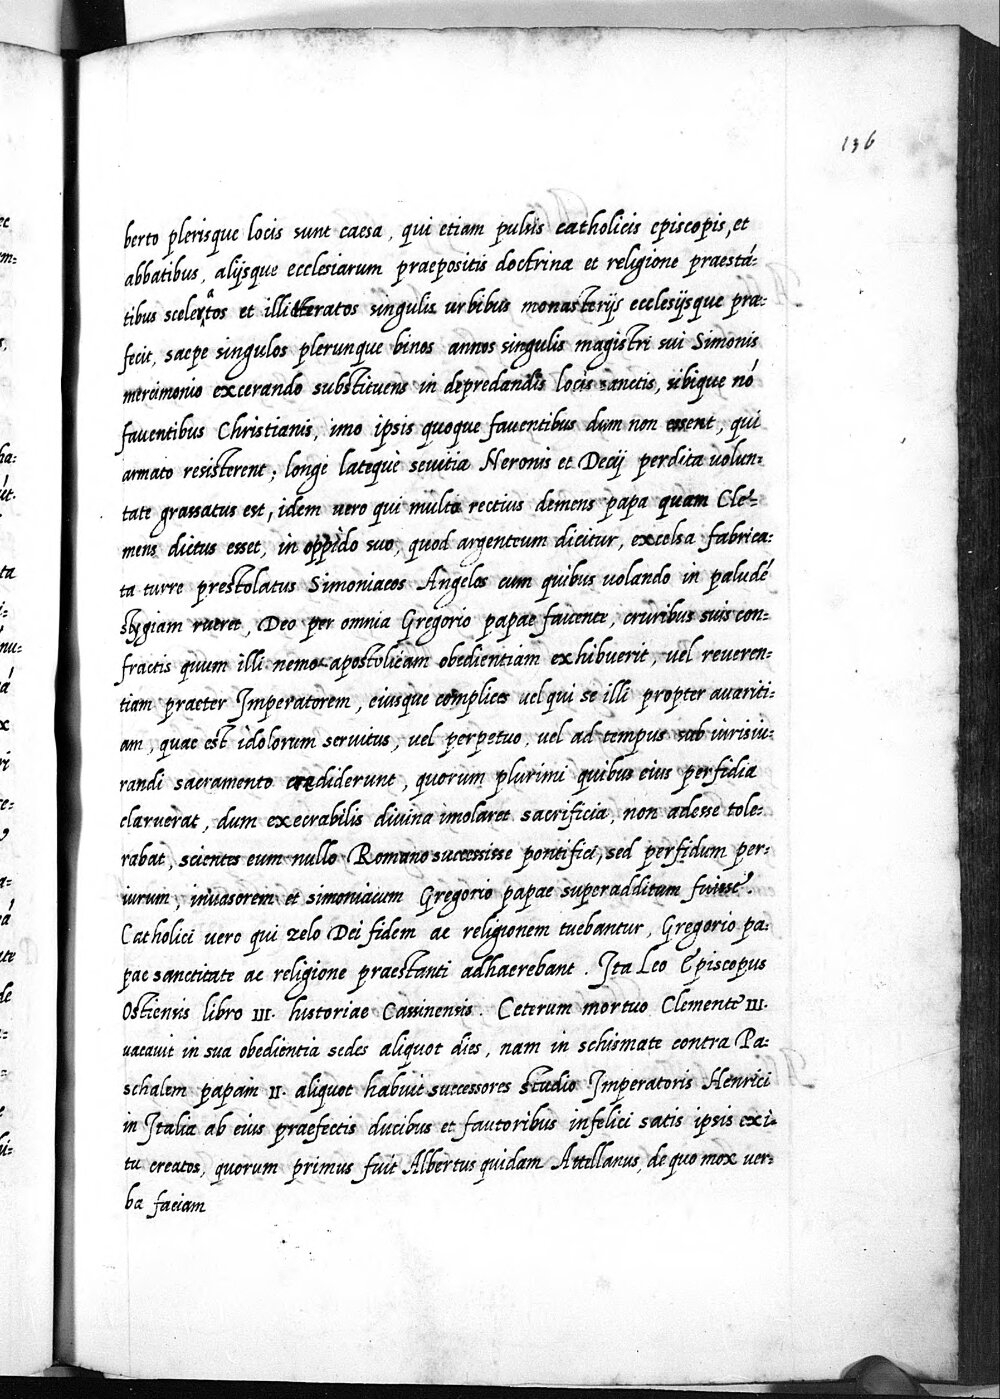 136
berto plerisque locis sunt caesa, qui etiam pulsis catholicis episcopis, et
abbatibus, alijsque ecclesiarum praepositis doctrina et religione praestá-
tibus sceleratos et illitteratos singulis urbibus monasterijs ecclesijsque prae-
fecit, saepe singulos plerunque binos annos singulis magistri sui Simonis
mercimonio excerando substituens in depredandis locis sanctis, ubique nó
faventibus Christianis, imo ipsis quoque faventibus dum non essent, qui
armato resisterent; longè lateque sevitia Neronis et Decij perdita volun-
tate grassatus est, idem vero qui multa rectius demens papa quam Cle-
mens dictus esset, in oppido suo, quod argenteum dicitur, excelsa fabrica-
ta turre prestolatus Simoniacos Angelos cum quibus volando in paludé
stygiam rueret, Deo per omnia Gregorio papae favente, cruribus suis con-
fractis quum illi nemo apostolicam obedientiam exhibuerit, vel reveren-
tiam praeter Imperatorem, eiusque complices vel qui se illi propter avariti-
am, quae est idolorum servitus, vel perpetuo, vel ad tempus sub iurisiu-
randi sacramento crediderunt, quorum plurimi quibus eius perfidia
claruerat, dum execrabilis divina imolaret sacrificia, non adesse tole-
rabat, scientes eum nullo Romano successisse pontifici, sed perfidum per-
iurum, invasorem et simoniacum Gregorio papae superadditum fuisse.
Catholici vero qui zelo Dei fidem ac religionem tuebantur, Gregorio pa-
pae sanctitate ac religione praestanti adhaerebant. Ita Leo Episcopus
Ostiensis libro III. historiae Cassinensis. Ceterum mortuo Clemente III.
vacavit in sua obedientia sedes aliquot dies, nam in schismate contra Pa-
schalem papam II. aliquot habuit successores studio Imperatoris Henrici
in Italia ab eius praefectis ducibus et fautoribus infelici satis ipsis exi-
tu creatos, quorum primus fuit Albertus quidam Attellanus, de quo mox ver-
ba faciam